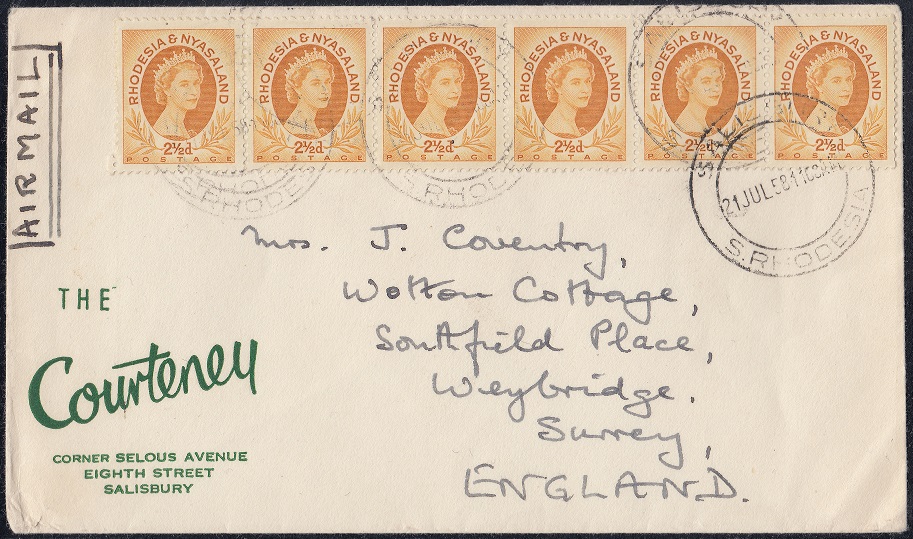 AIR MAIL
RHODESIA & NYASALAND
2½d
POSTAGE
RHODESIA & NYASALAND
2½d
POSTAGE
RHODESIA & NYASALAND
2½d
POSTAGE
RHODESIA & NYASALAND
2½d
POSTAGE
RHODESIA & NYASALAND
2½d
POSTAGE
RHODESIA & NYASALAND
2½d
POSTAGE
S.RHODESIA
S.RHODESIA
21 JUL 58
S.RHODESIA
Mrs. J. Coventry,
Wotton Cottage,
Southfield Place,
Weybridge.
Surrey,
ENGLAND.
THE
Courteney
CORNER SELOUS AVENUE
EIGHTH STREET
SALISBURY